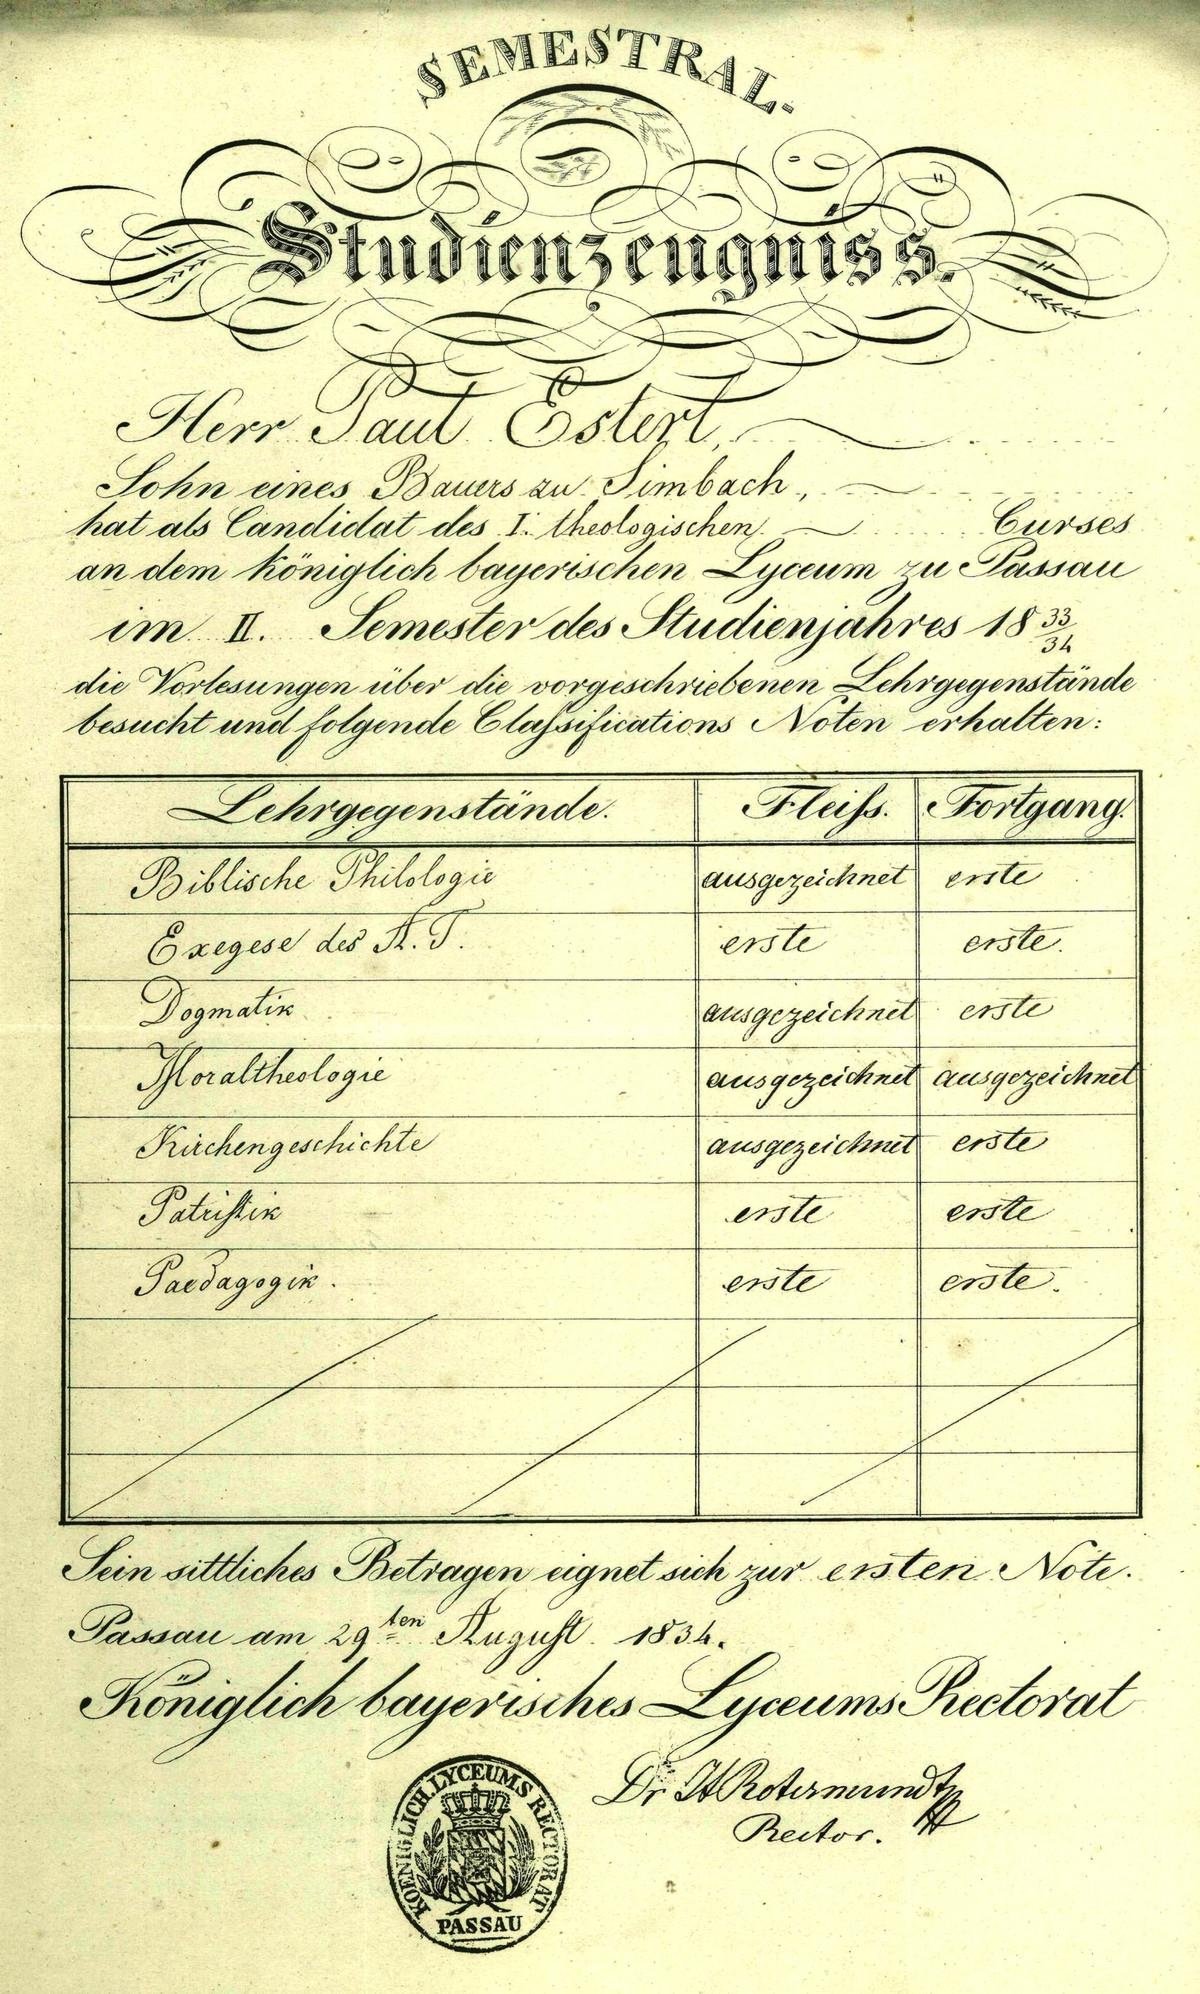 SEMESTRAL-
Studienzeugniss.
Herr Paul Esterl,
Sohn eines Bauers zu Simbach,
hat als Candidat des I. theologischen Curses
an dem königlich bayerischen Lyceum zu Passau
im II. Semester des Studienjahres 18 33/34
die Vorlesungen über die vorgeschriebenen Lehrgegenstände
besucht und folgende Claſsifications Noten erhalten:
Lehrgegenstände. Fleiſs. Fortgang.
Biblische Philologie ausgezeichnet erste
Exegese des A. T. erste erste.
Dogmatik ausgezeichnet erste
Moraltheologie ausgezeichnet ausgezeichnet
Kirchengeschichte ausgezeichnet erste
Patriſtik erste erste
Paedagogik. erste erste.
Sein sittliches Betragen eignet sich zur ersten Note.
Passau am 29ten Auguſt 1834.
Königlich bayerisches Lyceums Rectorat
Dr Rotermundt
Rector.
KOENIGLICH. LYCEUMS RECTORAT
PASSAU